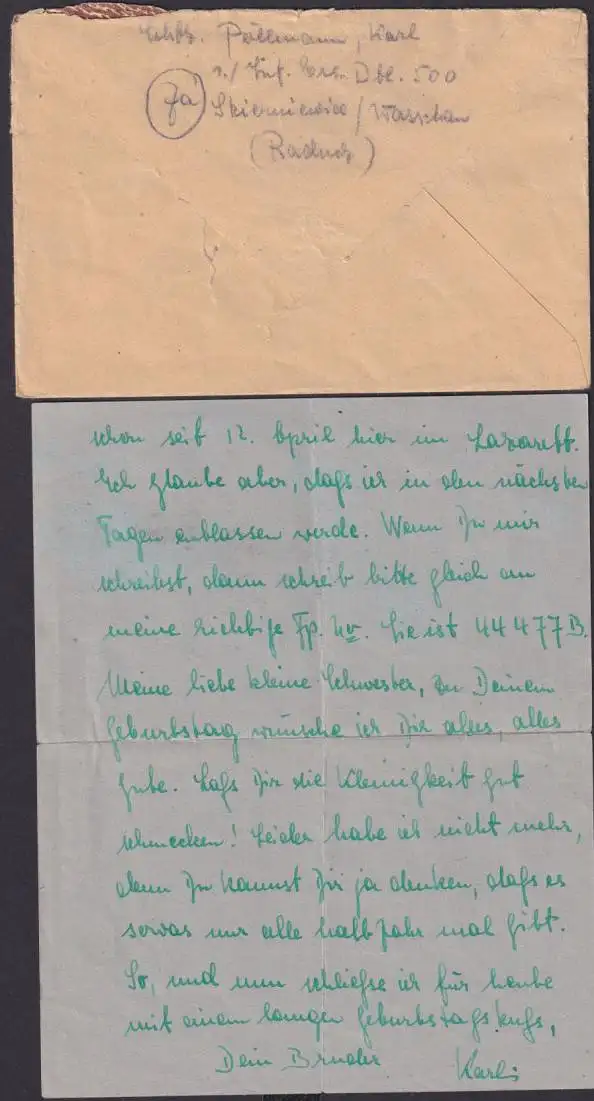 Schtz. Pöllmann, Karl
Inf. Ers. Btl. 500
Skierniewice / Warschau
(Raducz)
schon seit 12. April hier im Lazarett.
Ich glaube aber, daß ich in den nächsten
Tagen entlassen werde. Wenn Du mir
schreibst, dann schreib bitte gleich an
meine richtige Fp. Nr. Sie ist 44477 B.
Meine liebe kleine Schwester, zu Deinem
Geburtstag wünsche ich Dir alles, alles
Gute. Laß Dir die Kleinigkeit gut
schmecken! Leider habe ich nicht mehr,
denn Du kannst Dir ja denken, daß es
sowas nur alle halb Jahr mal gibt.
So, und nun schließe ich für heute
mit einem langen Geburtstagskuß,
Dein Bruder Karli